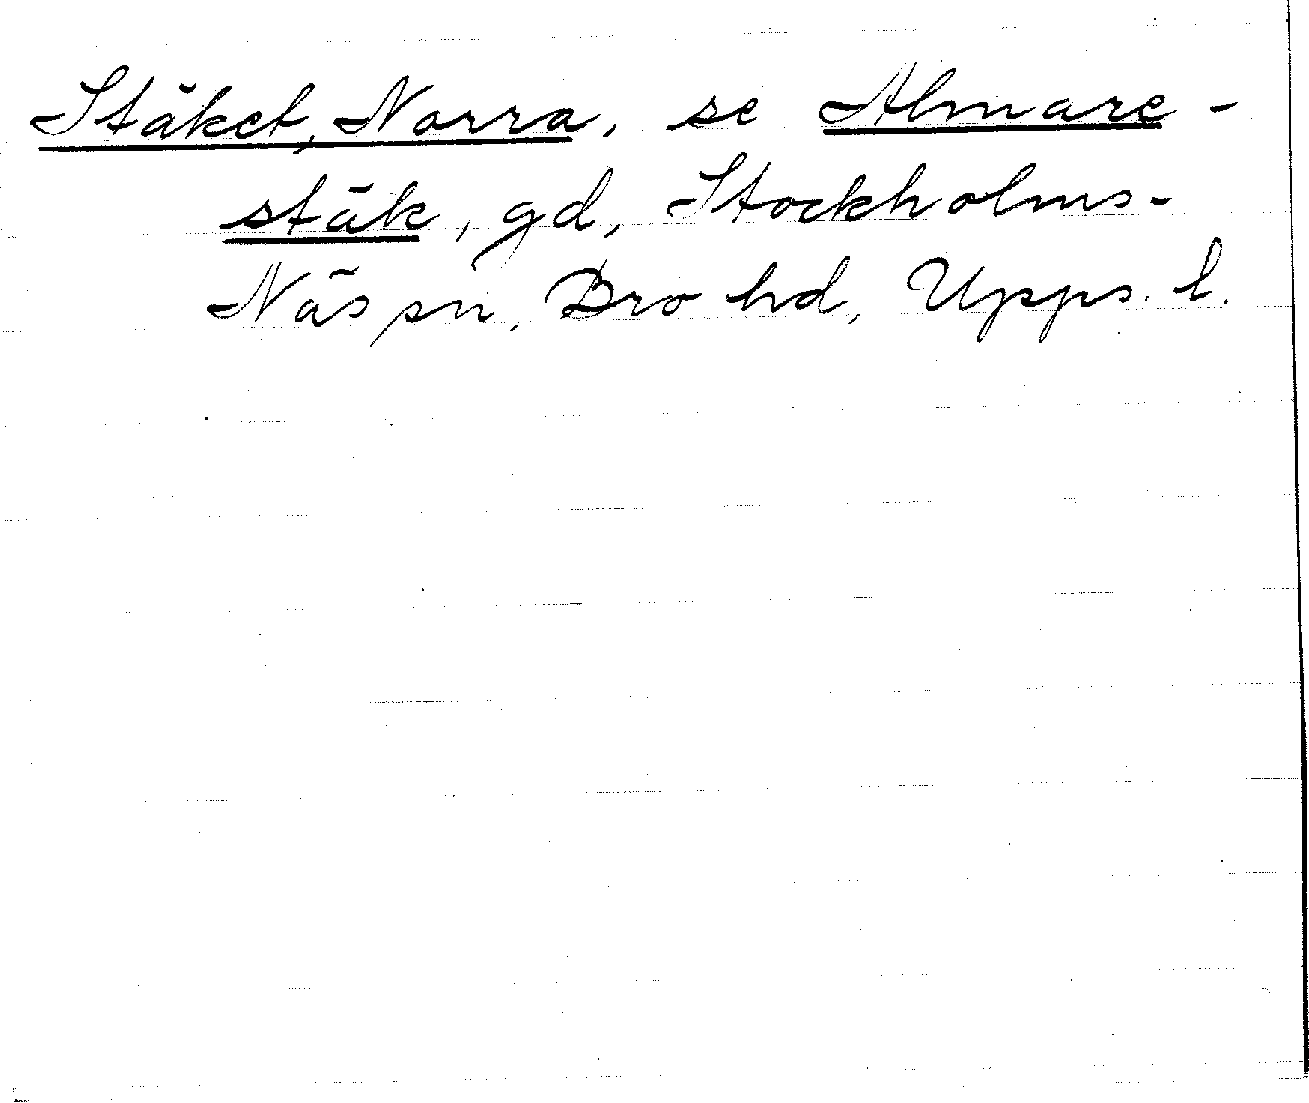 Stäket, Norra, se Almare-
stäk, gd, Stockholms-
Näs sn, Bro hd, Upps. l.